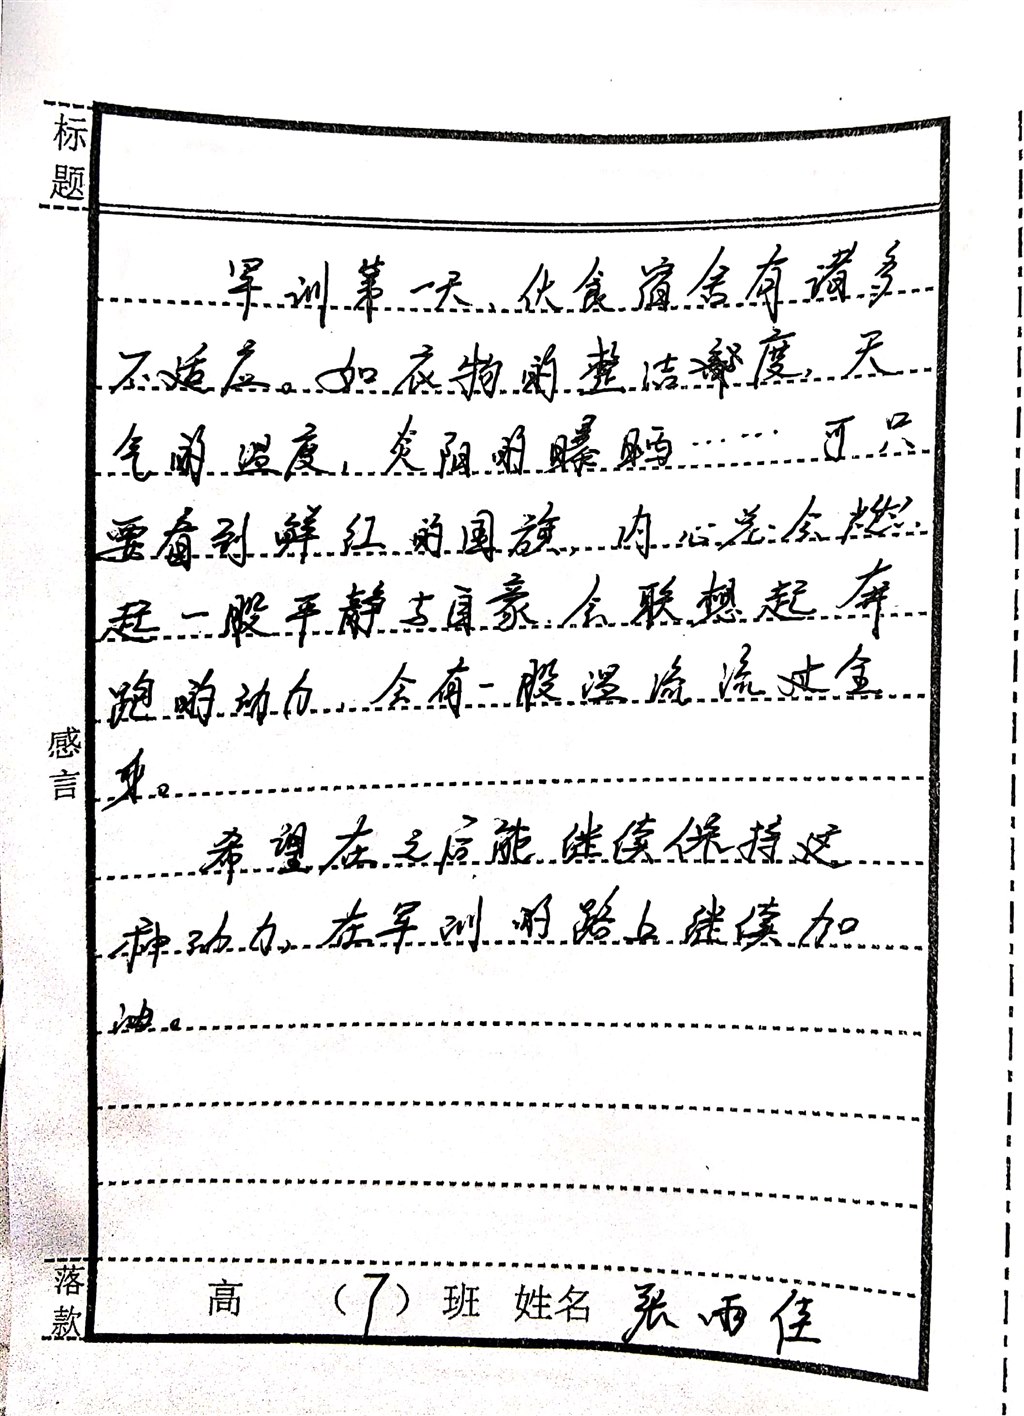 标题
军训第一天、伙食宿舍有诸多
不适应。如衣物的整洁度，天
气的温度，炎阳的曝晒……可只
要看到鲜红的国旗，内心总会燃
起一股平静与自豪，会联想起奔
跑的动力，会有一股温流流过全
身。
希望在之后能继续保持这
种动力，在军训的路上继续加
油。
感言
落款
高 （7）班 姓名 张雨佳